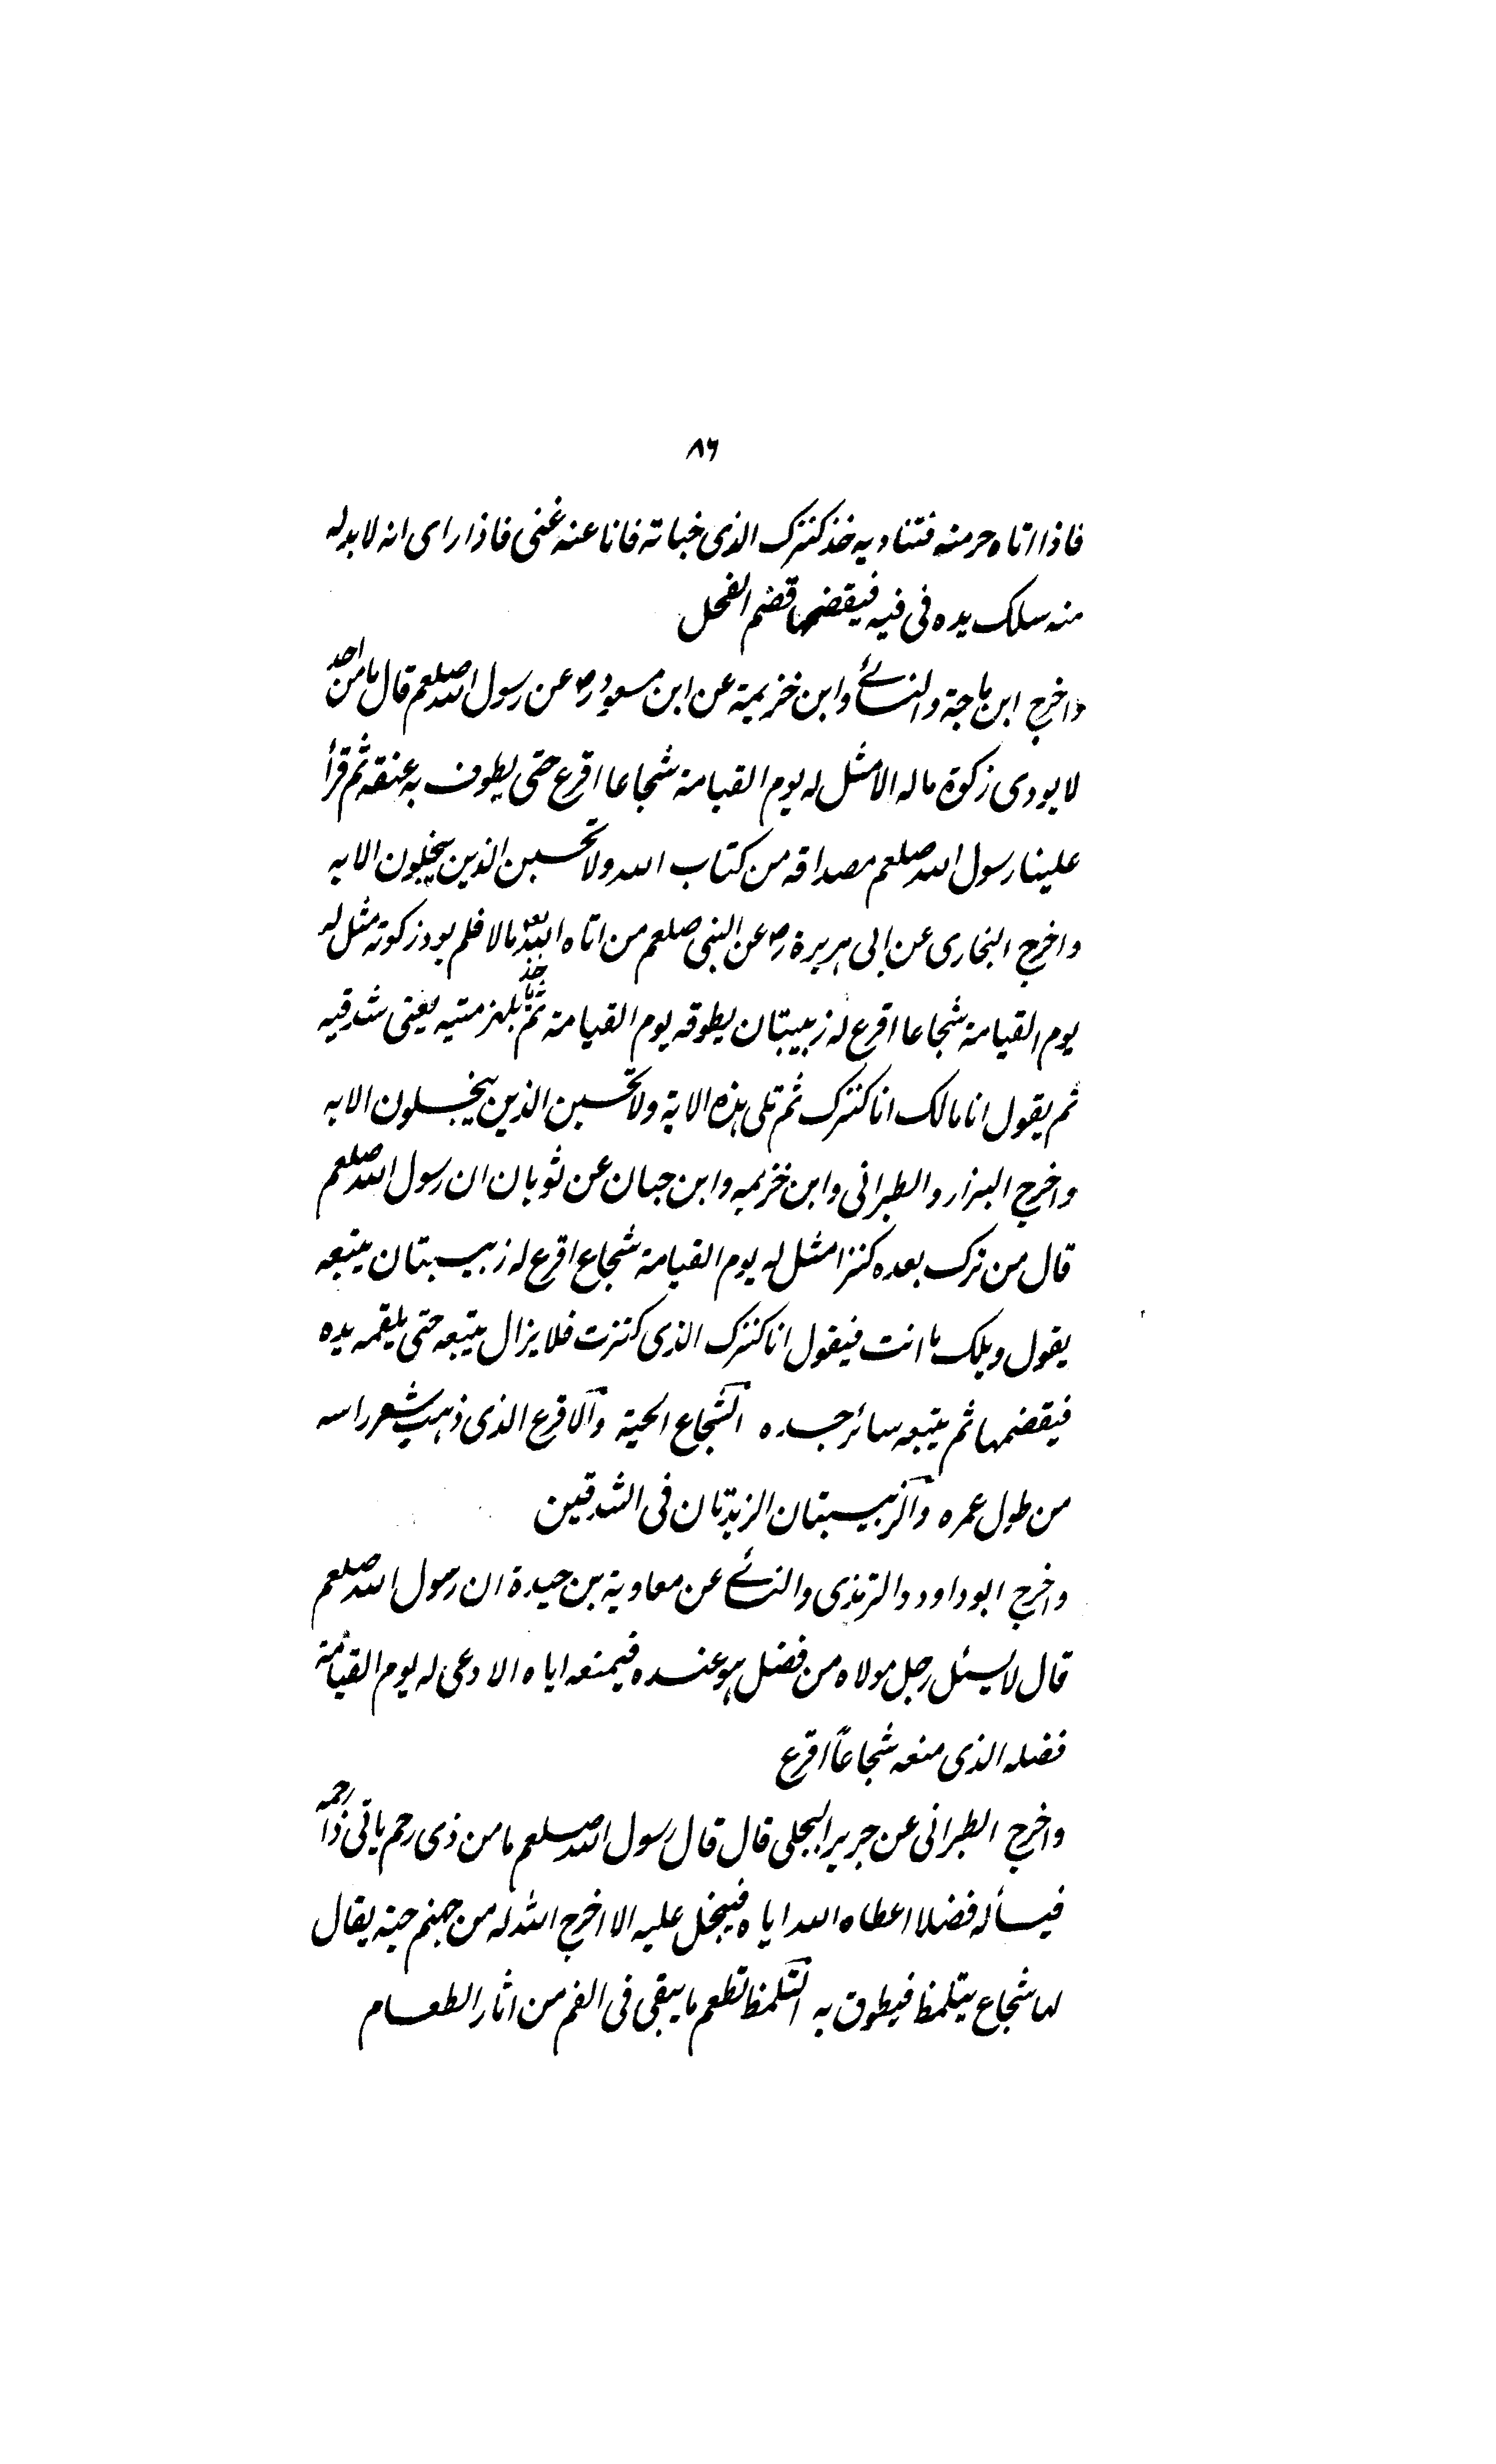 ٨٦
فاذا اتاه حر منه فتناديه خذ كنزك الذى خباته فانا عنه غنى فاذا راى انه لابد له
منه سلك يده فى فيه فيقضمها قضم الفحل
واخرج ابن ماجة والنسائے وابن خزيمة عن ابن مسعود رض عن رسول الله صلعم قال ما من احد
لا يودى زكوة ماله الا مثل له يوم القيامة شجاعا اقرع حتى يطوف به عنقه ثم قرأ
علينا رسول الله صلعم مصداقه من كتاب الله ولا تحسبن الذين يبخلون الايه
واخرج البخارى عن ابى هريرة رض عن النبى صلعم من اتاه الله مالا فلم يود زكوته مثل له
يوم القيامة شجاعا اقرع له زبيبتان يطوقه يوم القيامة ثم ياخذ بلهزمتيه يعنى شدقيه
ثم يقول انا مالك انا كنزك ثم تلى هذه الاية ولا تحسبن الذين يبخلون الايه
واخرج البزار والطبرانى وابن خزيمه وابن حبان عن ثوبان ان رسول الله صلعم
قال من ترك بعده كنزا مثل له يوم القيامة شجاع اقرع له زبيبتان يتبعه
يقول ويلك ما انت فيقول انا كنزك الذى كنزت فلا يزال يتبعه حتى يلقمه يده
فيقضمها ثم يتبعه سائر جسده الشجاع الحية والاقرع الذى ذهب شعر راسه
من طول عمره والزبيبتان الزبدتان فى الشدقين
واخرج ابو داود والترمذى والنسائے عن معاوية بن حيدة ان رسول الله صلعم
قال لا يسئل رجل مولاه من فضل هو عنده فيمنعه اياه الا دعى له يوم القيامة
فضله الذى منعه شجاعًا اقرع
واخرج الطبرانى عن جرير البجلى قال قال رسول الله صلعم ما من ذى رحم ياتى ذا رحمه
فيسأله فضلا اعطاه الله اياه فيبخل عليه الا اخرج الله له من جهنم حية يقال
لها شجاع يتلمظ فيطوق به التلمظ تطعم ما يبقى فى الفم من اثار الطعام